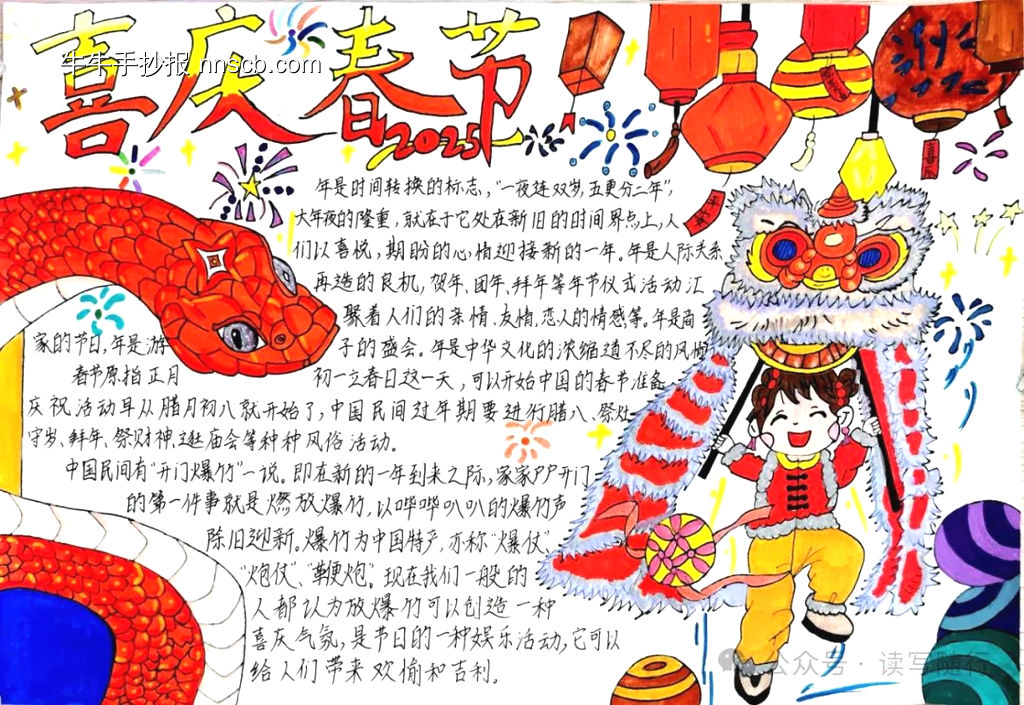 喜庆春节
2025
牛牛手抄报 nnscb.com
年是时间转换的标志,“一夜连双岁,五更分二年”,
大年夜的隆重,就在于它处在新旧的时间界点上,人
们以喜悦,期盼的心情迎接新的一年。年是人际关系
再造的良机,贺年、团年、拜年等年节仪式活动汇
聚着人们的亲情、友情,恋人的情感等。年是商
家的节日,年是游子的盛会。年是中华文化的浓缩道不尽的风情
春节原指正月初一立春日这一天,可以开始中国的春节准备
庆祝活动早从腊月初八就开始了,中国民间过年期要进行腊八、祭灶
守岁、拜年、祭财神逛庙会等种种风俗活动。
中国民间有“开门爆竹”一说。即在新的一年到来之际,家家户户开门
的第一件事就是燃放爆竹,以哔哔叭叭的爆竹声
除旧迎新。爆竹为中国特产,亦称“爆仗”、
“炮仗”、“鞭炮”。现在我们一般的
人都认为放爆竹可以创造一种
喜庆气氛,是节日的一种娱乐活动,它可以
给人们带来欢愉和吉利。
喜庆
公众号·读写随行